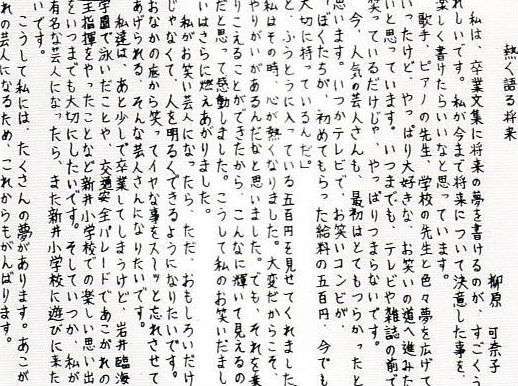 熱く語る将来
柳原 可奈子
私は、卒業文集に将来の夢を書けるのが、すごくう
れしいです。私が今まで将来について決意した事を、
楽しく書けたらいいなと思っています。
歌手、ピアノの先生、学校の先生と色々夢を広げて
いったけど、やっぱり大好きな、お笑いの道へ進みた
いと思っています。いつまでも、テレビや雑誌の前で
笑っているだけじゃ、やっぱりつまらないです。
今、人気の芸人さんも、最初はとてもつらかったと
思います。いつかテレビで、お笑いコンビが、
「ぼくたちが、初めてもらった給料の五百円、今でも
大切に持っているんだ」
と、ふうとうに入っている五百円を見せてくれました。
私はその時、心が熱くなりました。大変だからこそ、
やりがいがあるんだなと思いました。でも、それを乗
りこえることができたから、こんなに輝いて見えるの
だと思って感動しました。こうして私のお笑いだまし
いはさらに燃えあがりました。
私がお笑い芸人になったら、ただ、おもしろいだけ
じゃなくて、人を明るくできるようになりたいです。
おなかの底から笑ってイヤな事をスーッと忘れさせて
あげられる、そんな芸人さんになりたいです。
私達は、あと少しで卒業してしまうけど、岩井臨海
学園で泳いだことや、交通安全パレードであこがれの
主指揮をやったことなど新井小学校での楽しい思い出
をいつまでも大切にしたいです。そしていつか、私が
有名な芸人になったら、また新井小学校に遊びに来た
いです。
こうして私には、たくさんの夢があります。あこが
れの芸人になるため、これからもがんばります。